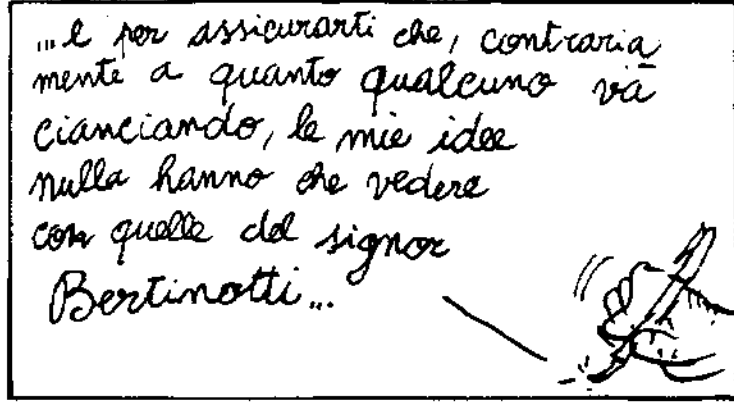 ...e per assicurarti che, contraria
mente a quanto qualcuno va
cianciando, le mie idee
nulla hanno che vedere
con quelle del signor
Bertinotti...